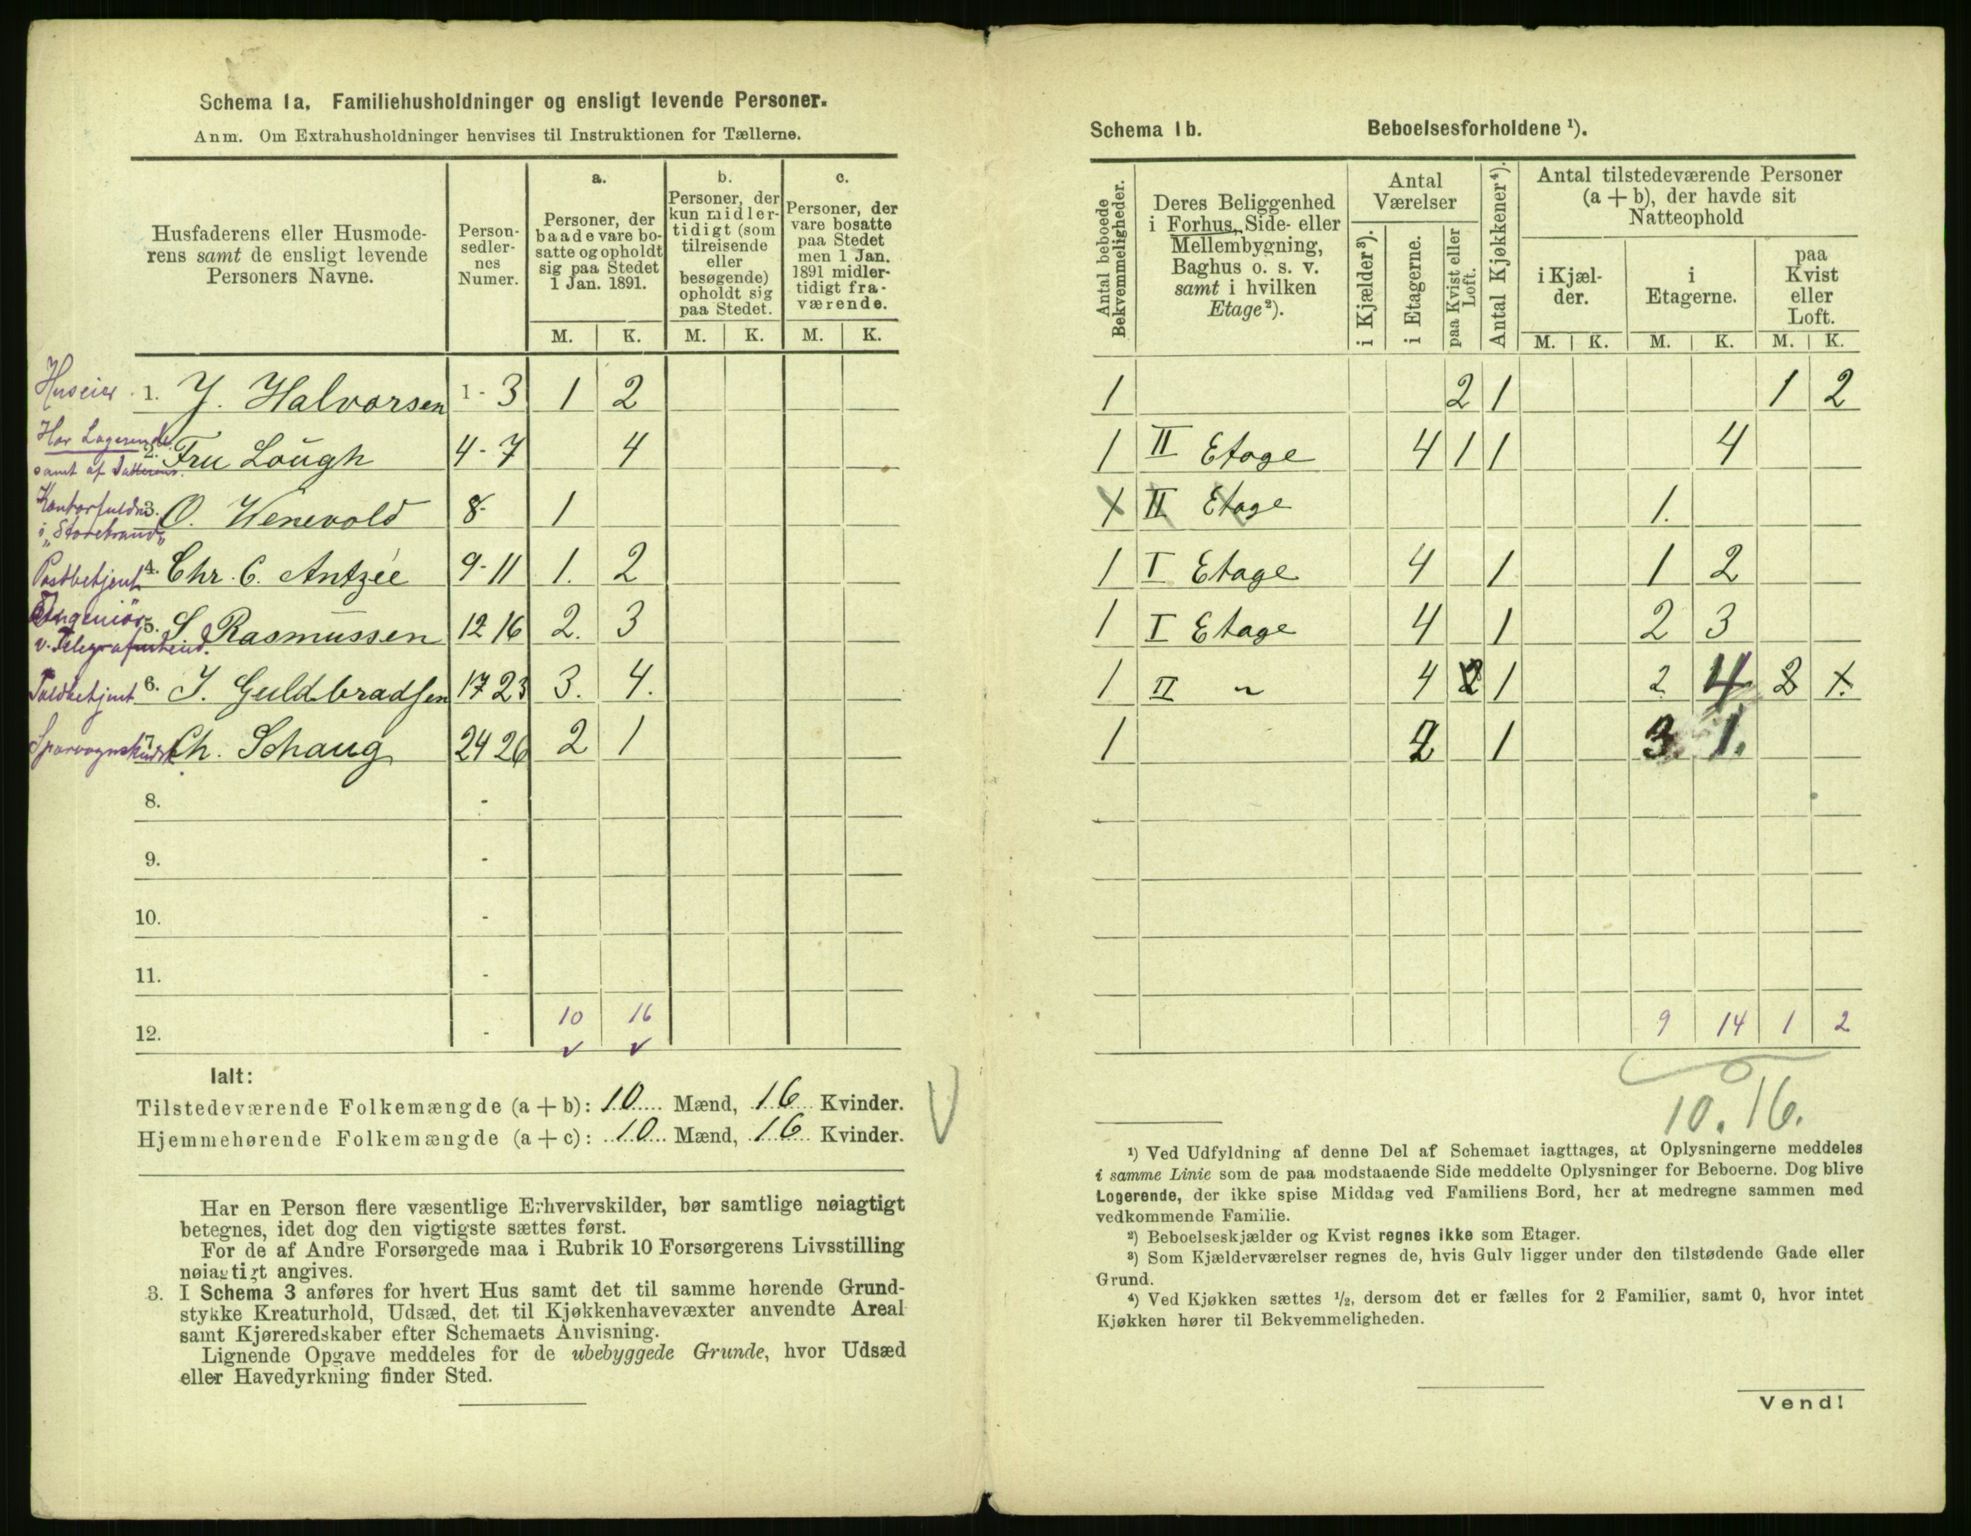 Schema 1a. Familiehusholdninger og ensligt levende Personer.
Anm. Om Extrahusholdninger henvises til Instruktionen for Tællerne.
Husfaderens eller Husmode-
rens samt de ensligt levende
Personers Navne.
Person-
sedler-
nes
Numer.
a.
Personer, der
baade vare bo-
satte og opholdt
sig paa Stedet
1 Jan. 1891.
b.
Personer, der
kun midler-
tidigt (som
tilreisende
eller
besøgende)
opholdt sig
paa Stedet.
c.
Personer, der
vare bosatte
paa Stedet
men 1 Jan.
1891 midler-
tidigt fra-
værende.
M. K. M. K. M. K.
Huseier 1. J. Halvorsen 1 - 3 1 2
Har Logerende 2. Fru Lough 4 - 7 4
samt af
Kontorfuldm. 3. O. Wenevold 8 - 1
i "Storebrand"
Postbetjent 4. Chr. C. Antzée 9 - 11 1. 2
Ingeniör 5. S. Rasmussen 12 16 2. 3
v. Telegraf
Toldbetjent 6. J. Guldbradsen 17 23 3. 4.
Sporvognskudsk 7. Ch. Schaug 24 26 2 1
8. -
9. -
10. -
11. -
12. - 10 16
Ialt:
Tilstedeværende Folkemængde (a + b): 10 Mænd, 16 Kvinder.
Hjemmehørende Folkemængde (a + c): 10 Mænd, 16 Kvinder.
Har en Person flere væsentlige Erhvervskilder, bør samtlige nøiagtigt
betegnes, idet dog den vigtigste sættes først.
For de af Andre Forsørgede maa i Rubrik 10 Forsørgerens Livsstilling
nøiagtigt angives.
3. I Schema 3 anføres for hvert Hus samt det til samme hørende Grund-
stykke Kreaturhold, Udsæd, det til Kjøkkenhavevæxter anvendte Areal
samt Kjøreredskaber efter Schemaets Anvisning.
Lignende Opgave meddeles for de ubebyggede Grunde, hvor Udsæd
eller Havedyrkning finder Sted.
Schema 1b. Beboelsesforholdene ¹).
Antal beboede
Bekvemmeligheder.
Deres Beliggenhed
i Forhus, Side- eller
Mellembygning,
Baghus o. s. v.
samt i hvilken
Etage²).
Antal
Værelser
i Kjælder³).
i Etagerne.
paa Kvist eller
Loft.
Antal Kjøkkener⁴).
Antal tilstedeværende Personer
(a + b), der havde sit
Natteophold
i Kjæl-
der.
i
Etagerne.
paa
Kvist
eller
Loft.
M. K. M. K. M. K.
1 2 1 1 2
1 II Etage 4 1 1 4
1 II Etage 1.
1 I Etage 4 1 1 2
1 I Etage 4 1 2 3
1 II " 4 2 1 2 4 2 1.
1 2 1 3 1.
9 14 1 2
10. 16.
¹) Ved Udfyldning af denne Del af Schemaet iagttages, at Oplysningerne meddeles
i samme Linie som de paa modstaaende Side meddelte Oplysninger for Beboerne. Dog blive
Logerende, der ikke spise Middag ved Familiens Bord, her at medregne sammen med
vedkommende Familie.
²) Beboelseskjælder og Kvist regnes ikke som Etager.
³) Som Kjælderværelser regnes de, hvis Gulv ligger under den tilstødende Gade eller
Grund.
⁴) Ved Kjøkken sættes ½, dersom det er fælles for 2 Familier, samt 0, hvor intet
Kjøkken hører til Bekvemmeligheden.
Vend!